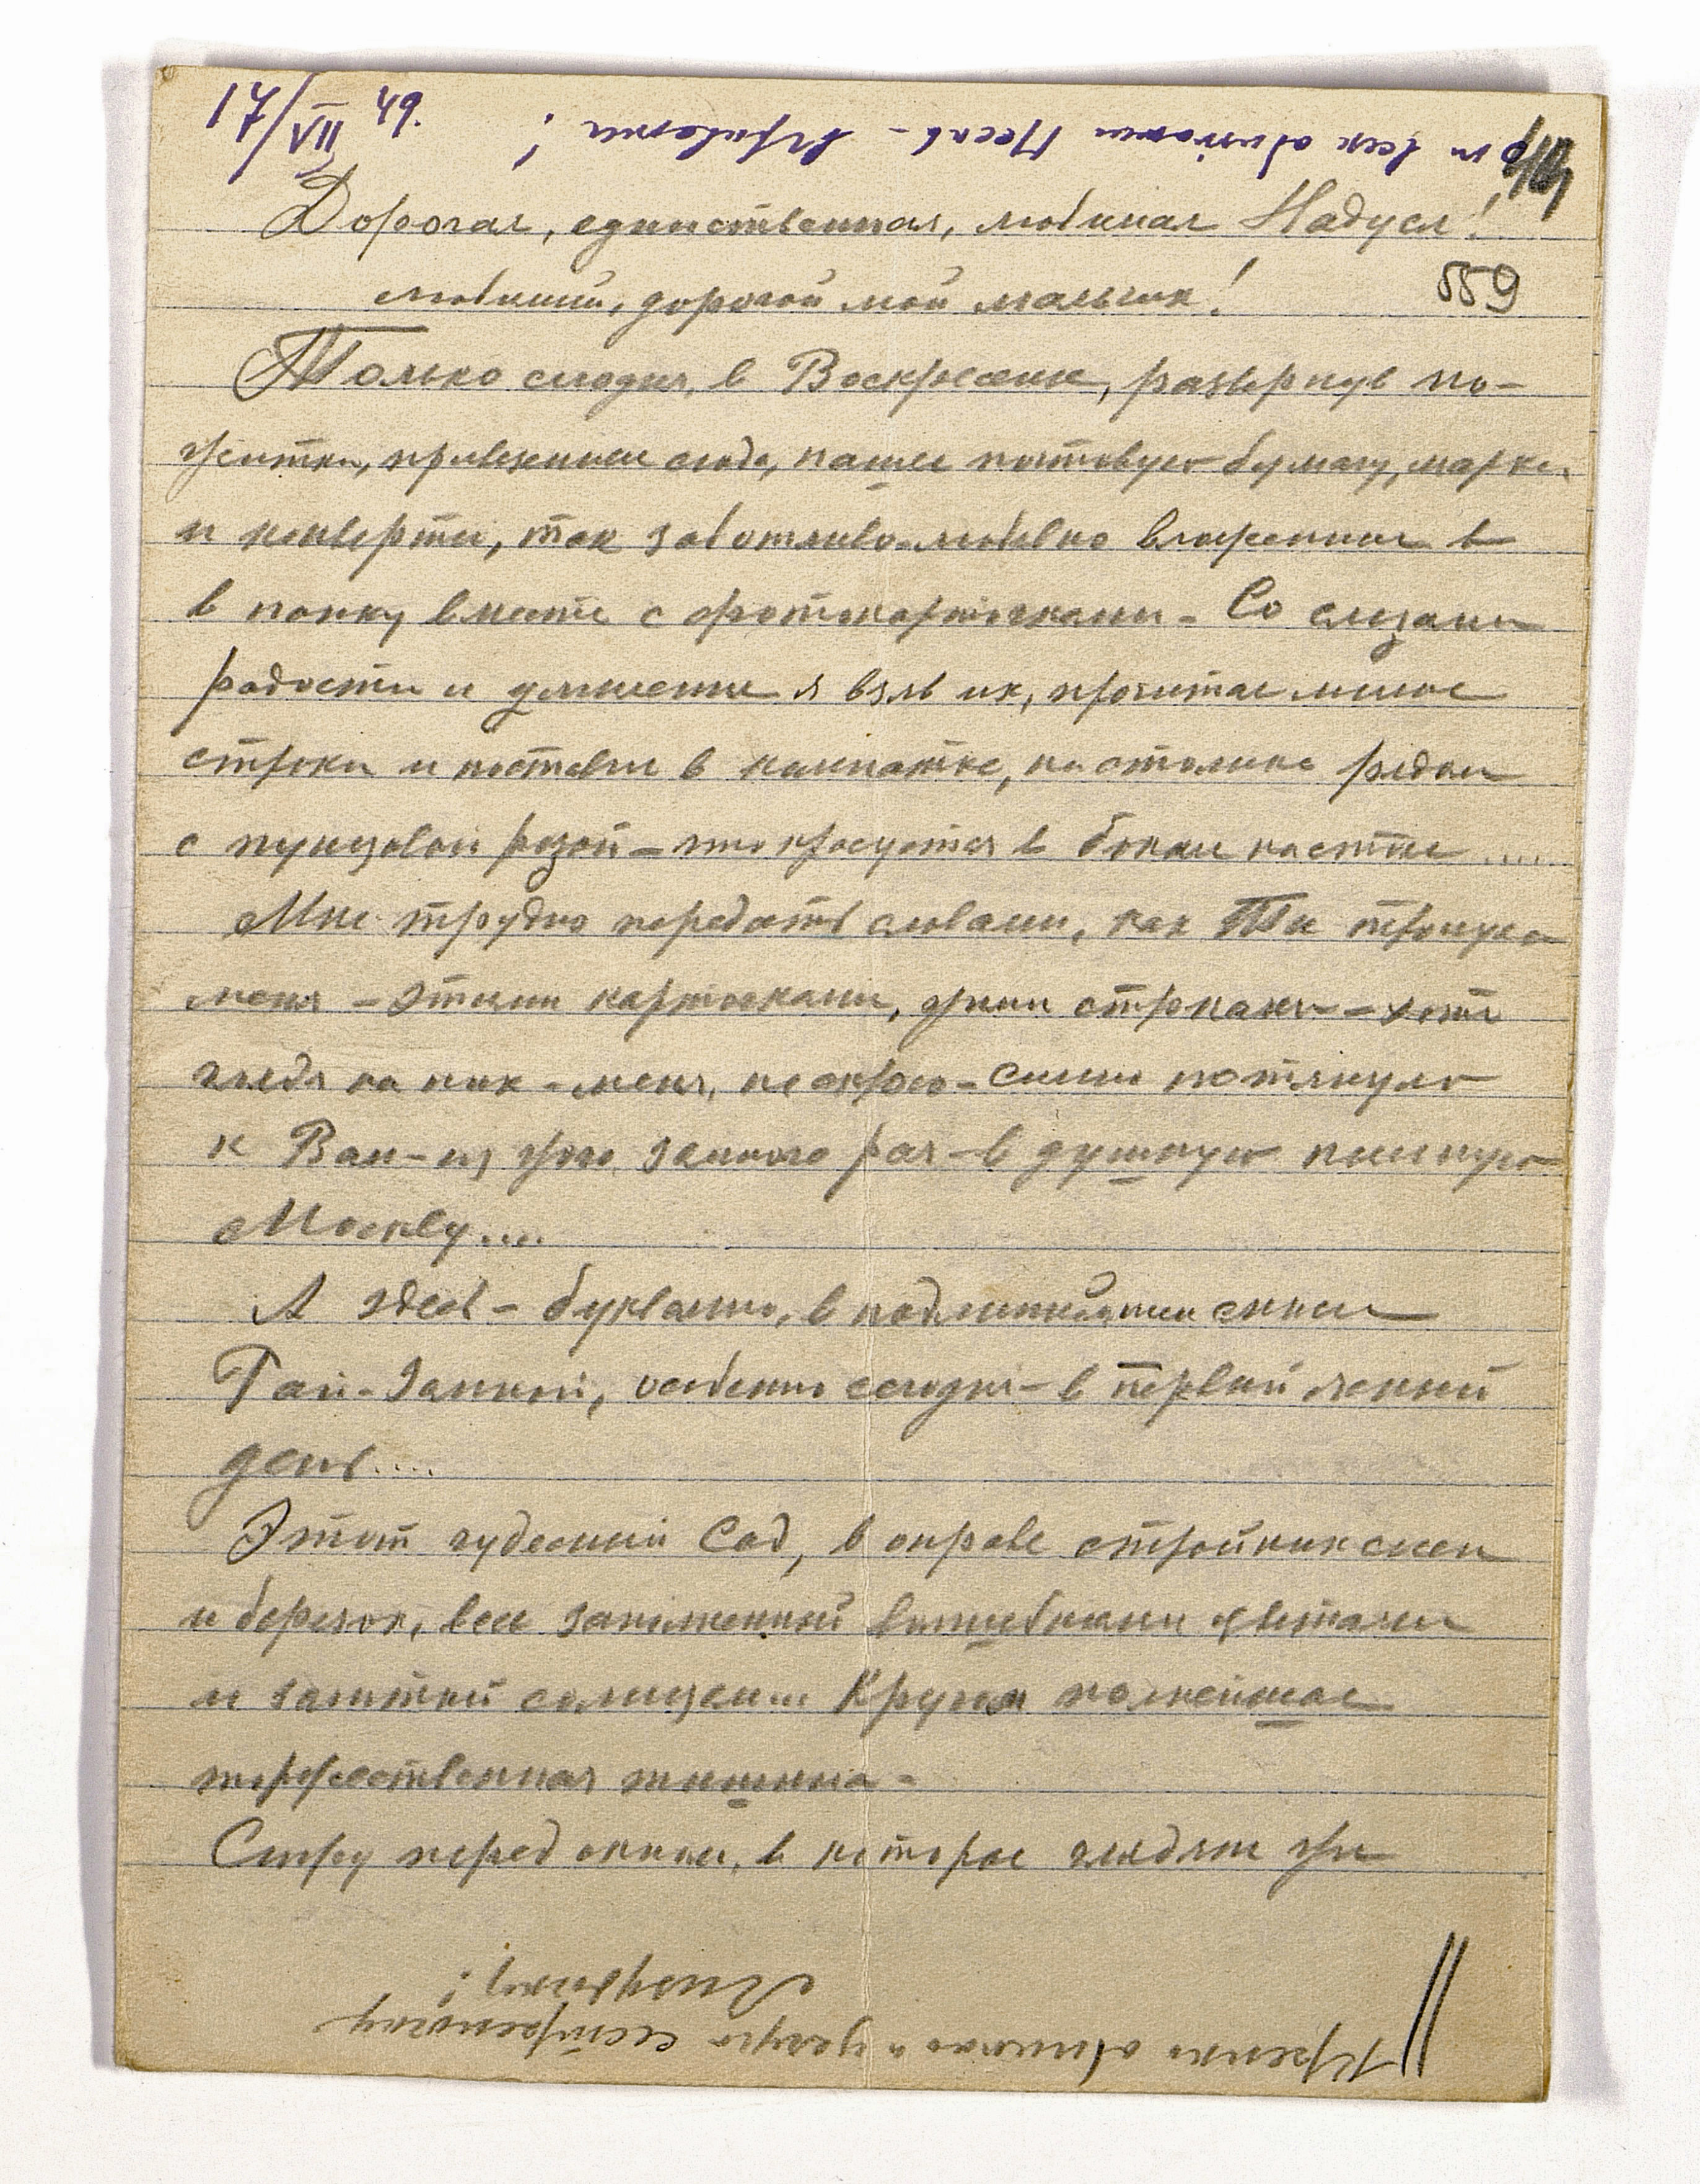 17/VII 49.
Дорогая, единственная, любимая Надуся!
любимый, дорогой мой мальчик!
559
Только сегодня, в Воскресенье, развернув по-
житки, привезенные сюда, нашел почтовую бумагу, марки
и конверты, так заботливо-любовно вложенные в
в папку вместе с фотокарточками - Со слезами
радости и умиления я взял их, прочитал милые
строки и поставил в комнатке, на столике рядом
с пунцовой розой - что красуется в бокале на столе ....
Мне трудно передать словами, как Ты тронула
меня - этими карточками, этими строками - хотя
глядя на них - меня, не скрою - сильно потянуло
к Вам - из этого земного рая - в душную пыльную
Москву....
А здесь - буквально, в подлинном смысле
Рай - Земной, особенно сегодня - в первый ясный
день....
Этот чудесный Сад, в оправе стройных елей
и березок, весь заполненный волшебными цветами
и залитый солнцем... Кругом полнейшая
торжественная тишина -
Сижу перед окном, в которое глядят эти
Крепко обнимаю и целую сестреночку